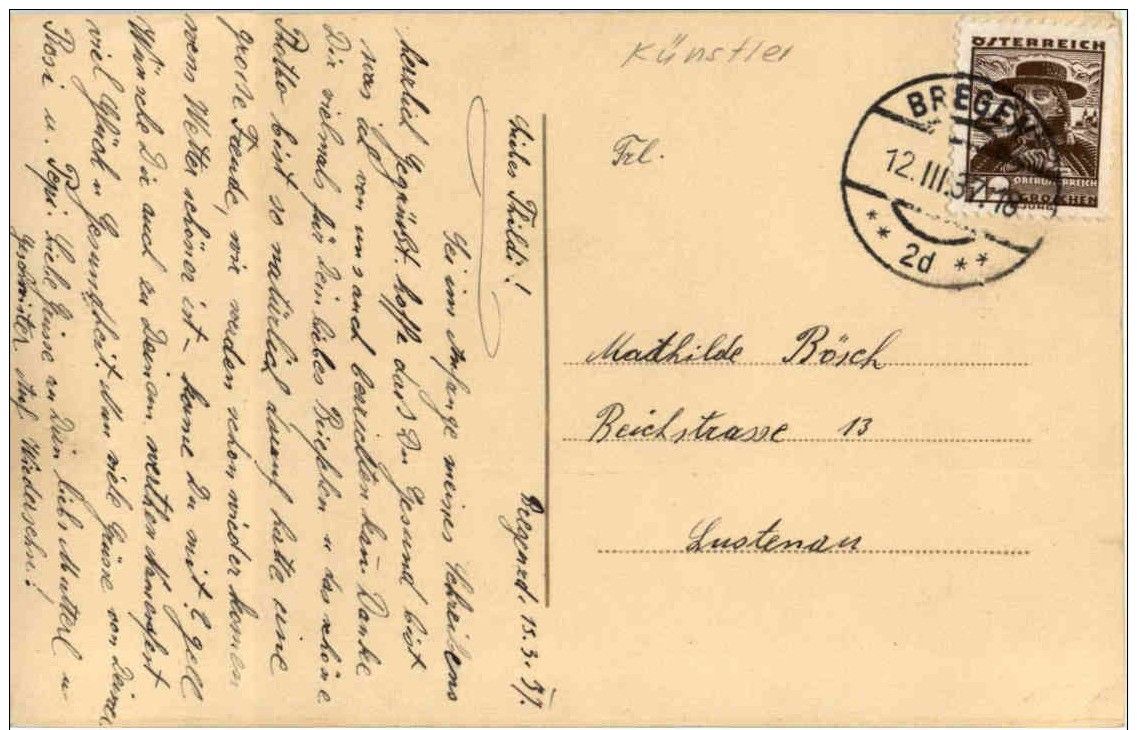 Künstler
ÖSTERREICH
BREGENZ
12. III. 37 - 18
** 2d **
OBERÖSTERREICH
GROSCHEN
Frl.
Mathilde Bösch
Reichstrasse 13
Lustenau
15.3.37.
Liebes Thildi!
Sei im Anfange meines Schreibens
herzlich Gegrüßt, hoffe dass Du Gesund bist
was ich von uns auch berichten kann Danke
Dir vielmals für Dein liebes Briefchen u das schöne
Photto bist so natürlich darauf hatte eine
grosse Freude, wir werden schon wieder komen
wens Wetter schöner ist - kome Du mit? gell
Wünsche Dir auch zu Deinem werthen Namensfest
viel Glück u Gesundheit. Nun viele Grüsse von Deiner
Rosi u. Pepi. Liebe Grüsse an Dein liebs Mutterl u
Geschwister Auf Wiedersehn!